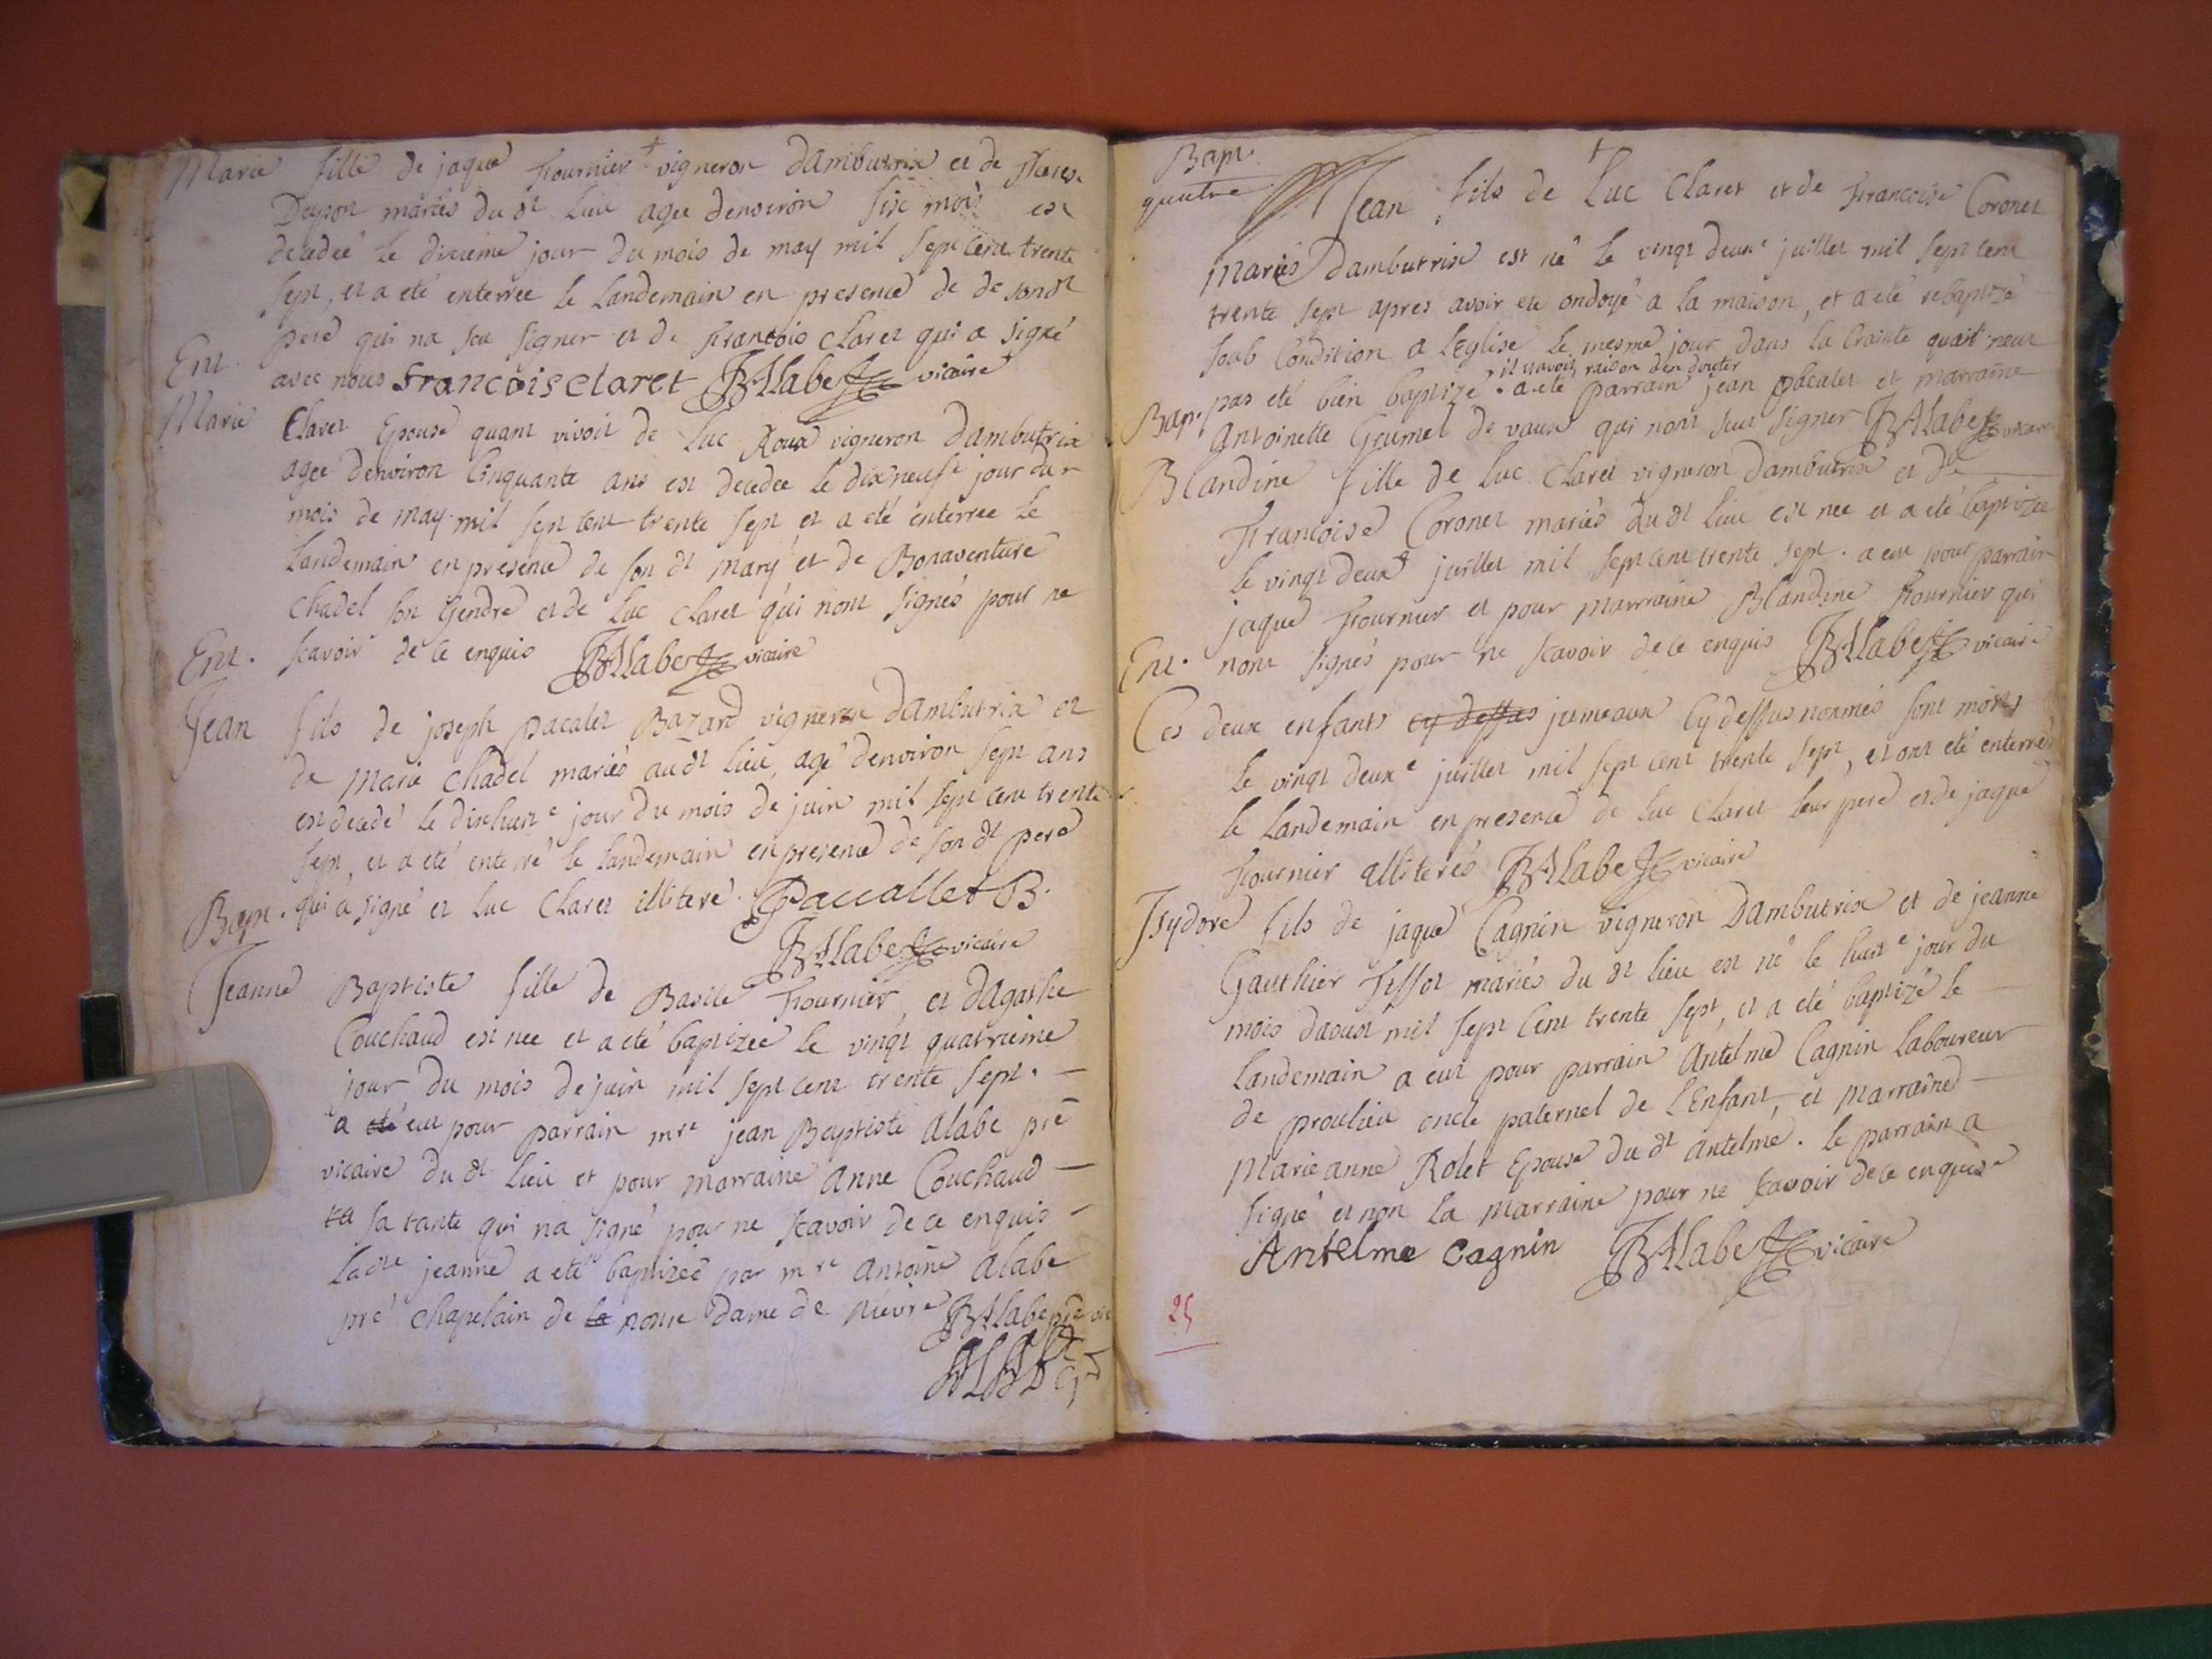 Marie fille de jaque Fournier vigneron dambutrix et de
Dupon mariés du dt lieu agee denviron six mois est
decedee le dixieme jour du mois de may mil sept cent trente
sept, et a eté enterrée le landemain en presence de de sondt
pere qui na seu signer et de francois claret qui a signé
Ent.
avec nous Francois claret JBAlabe vicaire
Marie Claret Epouse quant vivoit de Luc Roux vigneron dambutrix
agee denviron Cinquante ans est decedee le dixneufe jour du
mois de may mil sept cent trente sept et a eté enterree le
landemain en presence de son dt mary et de Bonaventure
Chadel son Gendre et de Luc claret qui nont signés pour ne
Ent. scavoir de ce enquis JBAlabe vicaire
Jean fils de joseph pacalet Bazard vigneron dambutrix et
de Marie Chadel mariés au dt lieu, agé denviron sept ans
est decedé le dixhuite jour du mois de juin mil sept cent trente
sept, et a eté enterré le landemain en presence de son dt pere
Bapt. qui a signé et Luc Claret illiteré. Paccallet B.
JBAlabe vicaire
Jeanne Baptiste fille de Basile Fournier, et dAgathe
Couchaud est nee et a eté baptizée le vingt quatrieme
jour du mois de juin mil sept cent trente sept.
a eté eut pour parrain mre jean Baptiste alabe pre
vicaire du dt lieu et pour marraine Anne Couchaud
ta sa tante qui na signé pour ne scavoir de ce enquis
ladte jeanne a eté baptizée par mre antoine alabe
pre chapelain de la notre dame de nievre JBAlabe pre vic
Bapt.
quatre Jean fils de Luc Claret et de Francoise Coronet
Mariés dambutrix est né le vingt deuxe juillet mil sept cent
trente sept apres avoir eté ondoyé a la maison, et a eté rebaptizé
soub Condition a lEglise le mesme jour dans la Crainte quait neut
il navoit raison den douter
Bap. pas eté bien baptizé. a eté parrain jean pacalet et marraine
Antoinette Grumel de vaux qui nont seu signer JBAlabe vicaire
Blandine fille de Luc Claret vigneron dambutrix et de
Francoise Coronet mariés du dt lieu est nee et a eté baptizée
le vingt deuxe juillet mil sept cent trente sept. a eut pour parrain
jaque Fournier et pour marraine Blandine Fournier qui
Ent. nont signés pour ne scavoir de ce enquis JBAlabe vicaire
Ces deux enfants cy dessus jumeaux Cy dessus nommés sont morts
le vingt deuxe juillet mil sept cent trente sept, et ont eté enterrés
le landemain en presence de Luc Claret leur pere et de jaque
Fournier alliterés JBAlabe vicaire
Isydore fils de jaque Cagnin vigneron Dambutrix et de jeanne
Gauthier Tissot mariés du dt lieu est né le huite jour du
mois daoust mil sept cent trente sept, et a eté baptizé le
landemain a eut pour parrain Antelme Cagnin laboureur
de proulieu oncle paternel de lEnfant, et marraine
Marie anne Rolet Epouse du dt antelme. le parrain a
signé et non la marraine pour ne scavoir de ce enquise
Antelme Cagnin JBAlabe vicaire
25